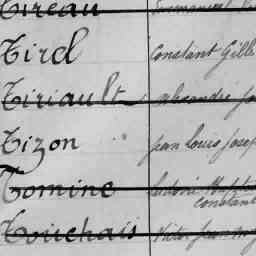 Tireau
Tirel Constant Gille
Tiriault Alexandre
Tizon Jean Louis Josep
Tomine
Constant
Touchais Victor Jean